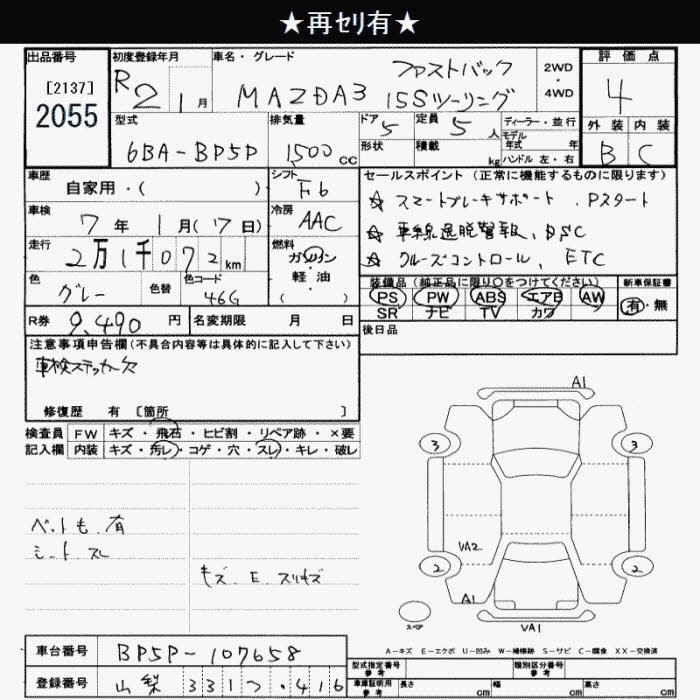 ★再セリ有★
出品番号
[2137]
2055
初度登録年月
R2 1月
車名・グレード
MAZDA3 ファストバック
15Sツーリング
2WD
・
4WD
評価点
4
外装 内装
B C
型式
6BA-BP5P
排気量
1500cc
ドア 5
定員 5人
形状
積載 kg
ディーラー・並行
モデル年式 年
ハンドル 左・右
車歴
自家用・( )
シフト
F6
車検
7年1月(17日)
冷房
AAC
走行
2万1千072km
燃料
ガソリン
・
軽油
( )
色
グレー
色替
色コード
46G
R券 9,490円
名変期限 月 日
セールスポイント(正常に機能するものに限ります)
☆ スマートブレーキサポート、Pスタート
☆ 車線逸脱警報、DSC
☆ クルーズコントロール、ETC
装備品(純正品に限り〇をつけてください)
PS PW ABS エアB AW
SR ナビ TV カワ
新車保証書
有・無
後日品
注意事項申告欄(不具合内容等は具体的に記入して下さい)
車検ステッカー欠
修復歴 有 [箇所 ]
検査員記入欄
FW キズ・飛石・ヒビ割・リペア跡・×要
内装 キズ・汚レ・コゲ・穴・スレ・キレ・破レ
ペットも有
シートスレ
キズ、E、スリキズ
A1
3 3
VA2
2 2
A1
VA1
スペア
A-キズ E-エクボ U-凹み W-補修跡 S-サビ C-腐食 XX-交換済
車台番号 BP5P-107658
登録番号 山梨 331つ・416
型式指定番号 参考
類別区分番号 参考
車庫証明用 参考
長さ cm 幅 cm 高さ cm